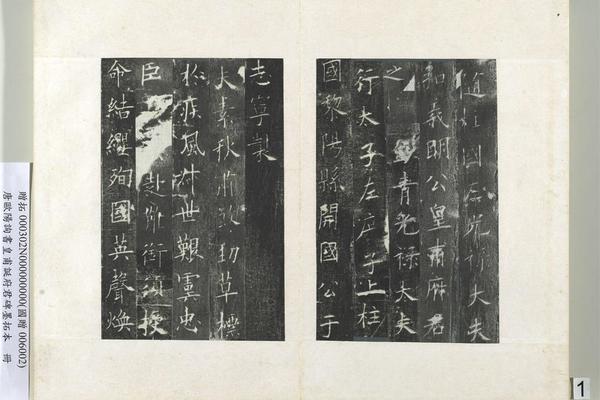 隋柱國左光祿大夫
弘義明公皇甫府君
之 青光祿大夫
行太子左庶子上柱
國黎陽縣開國公于
志寧製
夫素秋肅煞勁草標
於疾風叔世艱虞忠
臣 赴難銜須授
命結纓殉國英聲煥
贈拓 000302N000000000(國贈 006002)
唐歐陽詢書皇甫誕府君碑墨拓本 冊
1